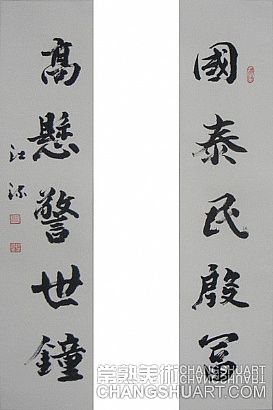 國泰民殷富
高懸警世鐘
常熟美術 CHANGSHUART
CHANGSHUART.COM